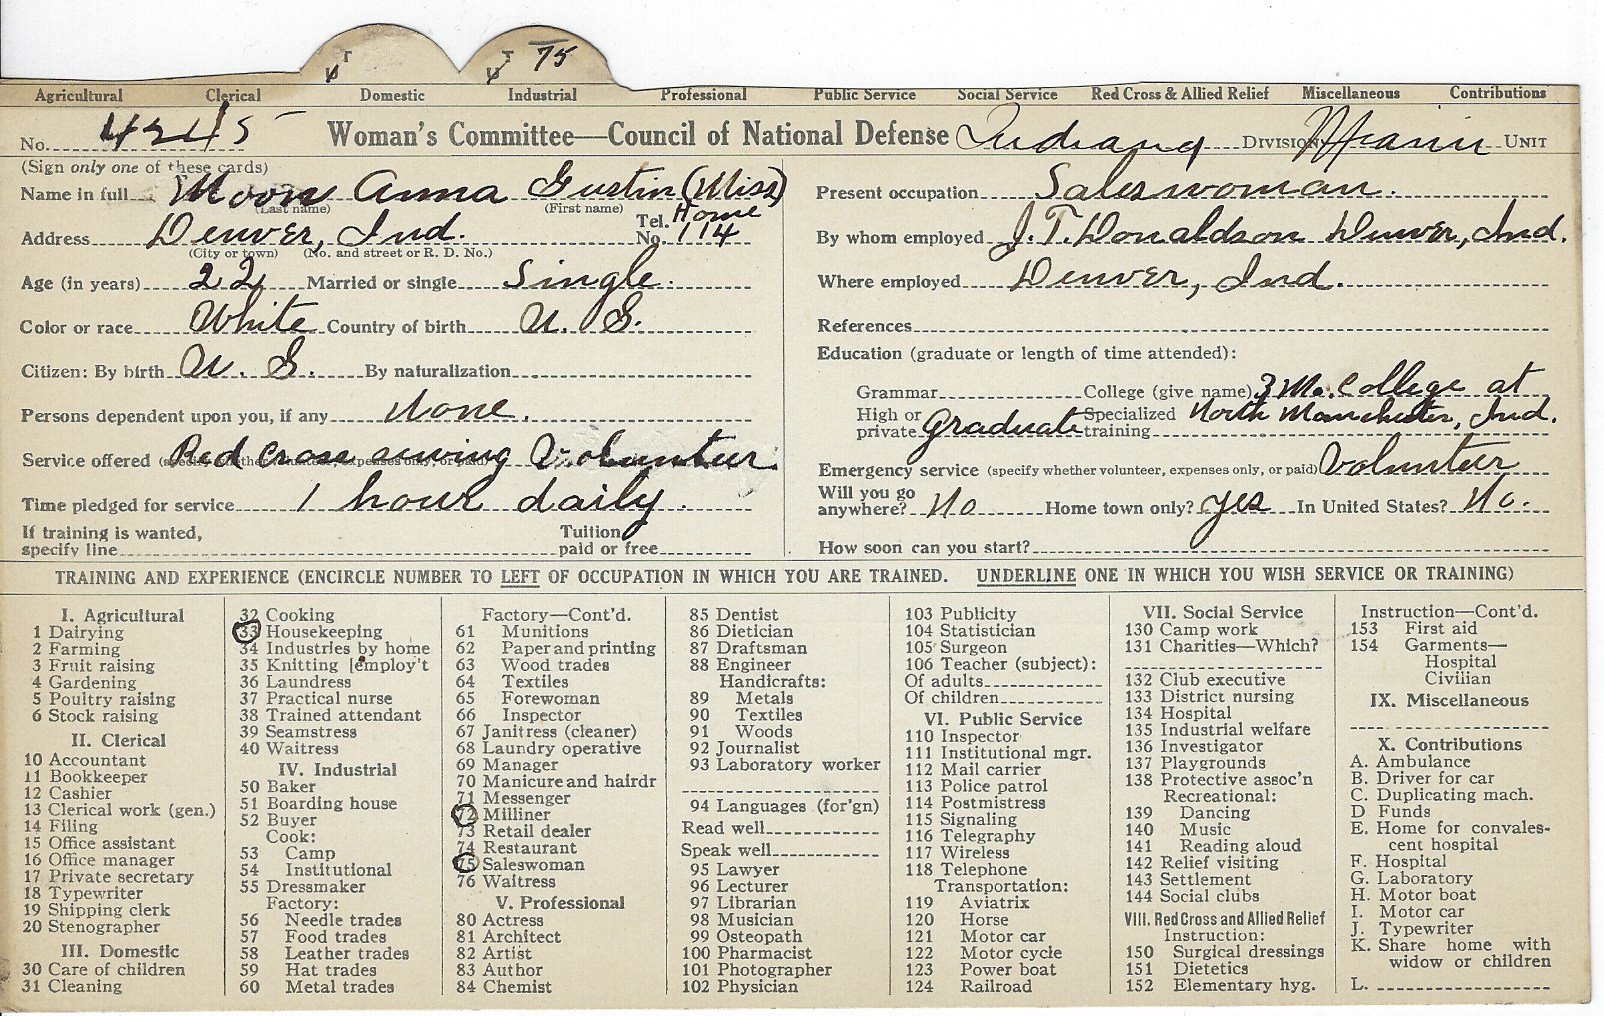 T T 75
Agricultural Clerical Domestic Industrial Professional Public Service Social Service Red Cross & Allied Relief Miscellaneous Contributions
No. 4245 Woman's Committee—Council of National Defense Indiana DIVISION Miami UNIT
(Sign only one of these cards)
Name in full Moon Anna Gustin (Miss)
(Last name) (First name)
Address Denver, Ind. Tel. No. Home 114
(City or town) (No. and street or R. D. No.)
Age (in years) 22 Married or single Single.
Color or race White Country of birth U. S.
Citizen: By birth U. S. By naturalization
Persons dependent upon you, if any None.
Service offered (specify whether volunteer, expenses only, or paid) Red Cross sewing Volunteer.
Time pledged for service 1 hour daily.
If training is wanted, specify line Tuition paid or free
Present occupation Saleswoman.
By whom employed J. T. Donaldson Denver, Ind.
Where employed Denver, Ind.
References
Education (graduate or length of time attended):
Grammar College (give name) 3 Mo. College at
High or private graduate Specialized training North Manchester, Ind.
Emergency service (specify whether volunteer, expenses only, or paid) Volunteer
Will you go anywhere? No Home town only? yes In United States? No.
How soon can you start?
TRAINING AND EXPERIENCE (ENCIRCLE NUMBER TO LEFT OF OCCUPATION IN WHICH YOU ARE TRAINED. UNDERLINE ONE IN WHICH YOU WISH SERVICE OR TRAINING)
I. Agricultural
1 Dairying
2 Farming
3 Fruit raising
4 Gardening
5 Poultry raising
6 Stock raising
II. Clerical
10 Accountant
11 Bookkeeper
12 Cashier
13 Clerical work (gen.)
14 Filing
15 Office assistant
16 Office manager
17 Private secretary
18 Typewriter
19 Shipping clerk
20 Stenographer
III. Domestic
30 Care of children
31 Cleaning
32 Cooking
33 Housekeeping
34 Industries by home
35 Knitting [employ't
36 Laundress
37 Practical nurse
38 Trained attendant
39 Seamstress
40 Waitress
IV. Industrial
50 Baker
51 Boarding house
52 Buyer
Cook:
53 Camp
54 Institutional
55 Dressmaker
Factory:
56 Needle trades
57 Food trades
58 Leather trades
59 Hat trades
60 Metal trades
Factory—Cont'd.
61 Munitions
62 Paper and printing
63 Wood trades
64 Textiles
65 Forewoman
66 Inspector
67 Janitress (cleaner)
68 Laundry operative
69 Manager
70 Manicure and hairdr
71 Messenger
72 Milliner
73 Retail dealer
74 Restaurant
75 Saleswoman
76 Waitress
V. Professional
80 Actress
81 Architect
82 Artist
83 Author
84 Chemist
85 Dentist
86 Dietician
87 Draftsman
88 Engineer
Handicrafts:
89 Metals
90 Textiles
91 Woods
92 Journalist
93 Laboratory worker
94 Languages (for'gn)
Read well
Speak well
95 Lawyer
96 Lecturer
97 Librarian
98 Musician
99 Osteopath
100 Pharmacist
101 Photographer
102 Physician
103 Publicity
104 Statistician
105 Surgeon
106 Teacher (subject):
Of adults
Of children
VI. Public Service
110 Inspector
111 Institutional mgr.
112 Mail carrier
113 Police patrol
114 Postmistress
115 Signaling
116 Telegraphy
117 Wireless
118 Telephone
Transportation:
119 Aviatrix
120 Horse
121 Motor car
122 Motor cycle
123 Power boat
124 Railroad
VII. Social Service
130 Camp work
131 Charities—Which?
132 Club executive
133 District nursing
134 Hospital
135 Industrial welfare
136 Investigator
137 Playgrounds
138 Protective assoc'n
Recreational:
139 Dancing
140 Music
141 Reading aloud
142 Relief visiting
143 Settlement
144 Social clubs
VIII. Red Cross and Allied Relief
Instruction:
150 Surgical dressings
151 Dietetics
152 Elementary hyg.
Instruction—Cont'd.
153 First aid
154 Garments—
Hospital
Civilian
IX. Miscellaneous
X. Contributions
A. Ambulance
B. Driver for car
C. Duplicating mach.
D Funds
E. Home for convales-
cent hospital
F. Hospital
G. Laboratory
H. Motor boat
I. Motor car
J. Typewriter
K. Share home with
widow or children
L.